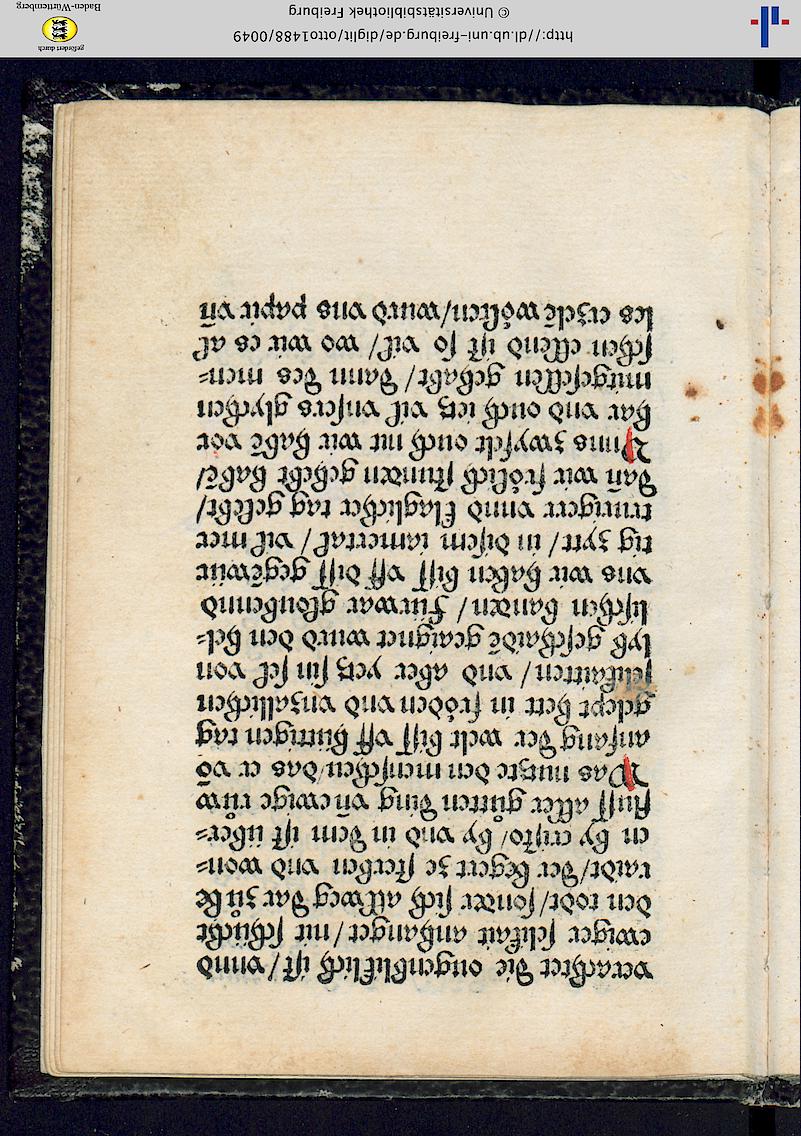 verachtet die ougenbliklich ist/vnnd
ewiger selikait anhanget/nit schücht
den todt/sonder sich allweg dar zů be
raidt/der begert ze sterben vnd won-
en by cristo/ by vnd in dem ist über-
fluss aller gůtten ding vñ ewige růw
Was nutzte den menschen/das er vō
anfang der welt biss vff hüttigen tag
gelept hett in fröden vnd vnzallichen
selikaitten/ vnd aber yetz sin sel von
lyb geschaide geaignet wurd den hel-
lischen banden/ Fürwar gloubennd
vns wir haben biss vff diss gegēwür
tig zytt/ in disem iamertal/ vil mer
truriger vnnd klaglicher tag gelebt/
dañ wir frölich stunden gehebt habē/
Vnns zwyfelt ouch nit wir habē vor
har vnd ouch ietz vil vnsers glychen
mitgesellen gehabt/ dann des men-
schen ellend ist so vil/ wo wir es al
les erzelē wölten/wurd vns papir vñ
http://dl.ub.uni-freiburg.de/diglit/otto1488/0049
© Universitätsbibliothek Freiburg
gefördert durch
Baden-Württemberg